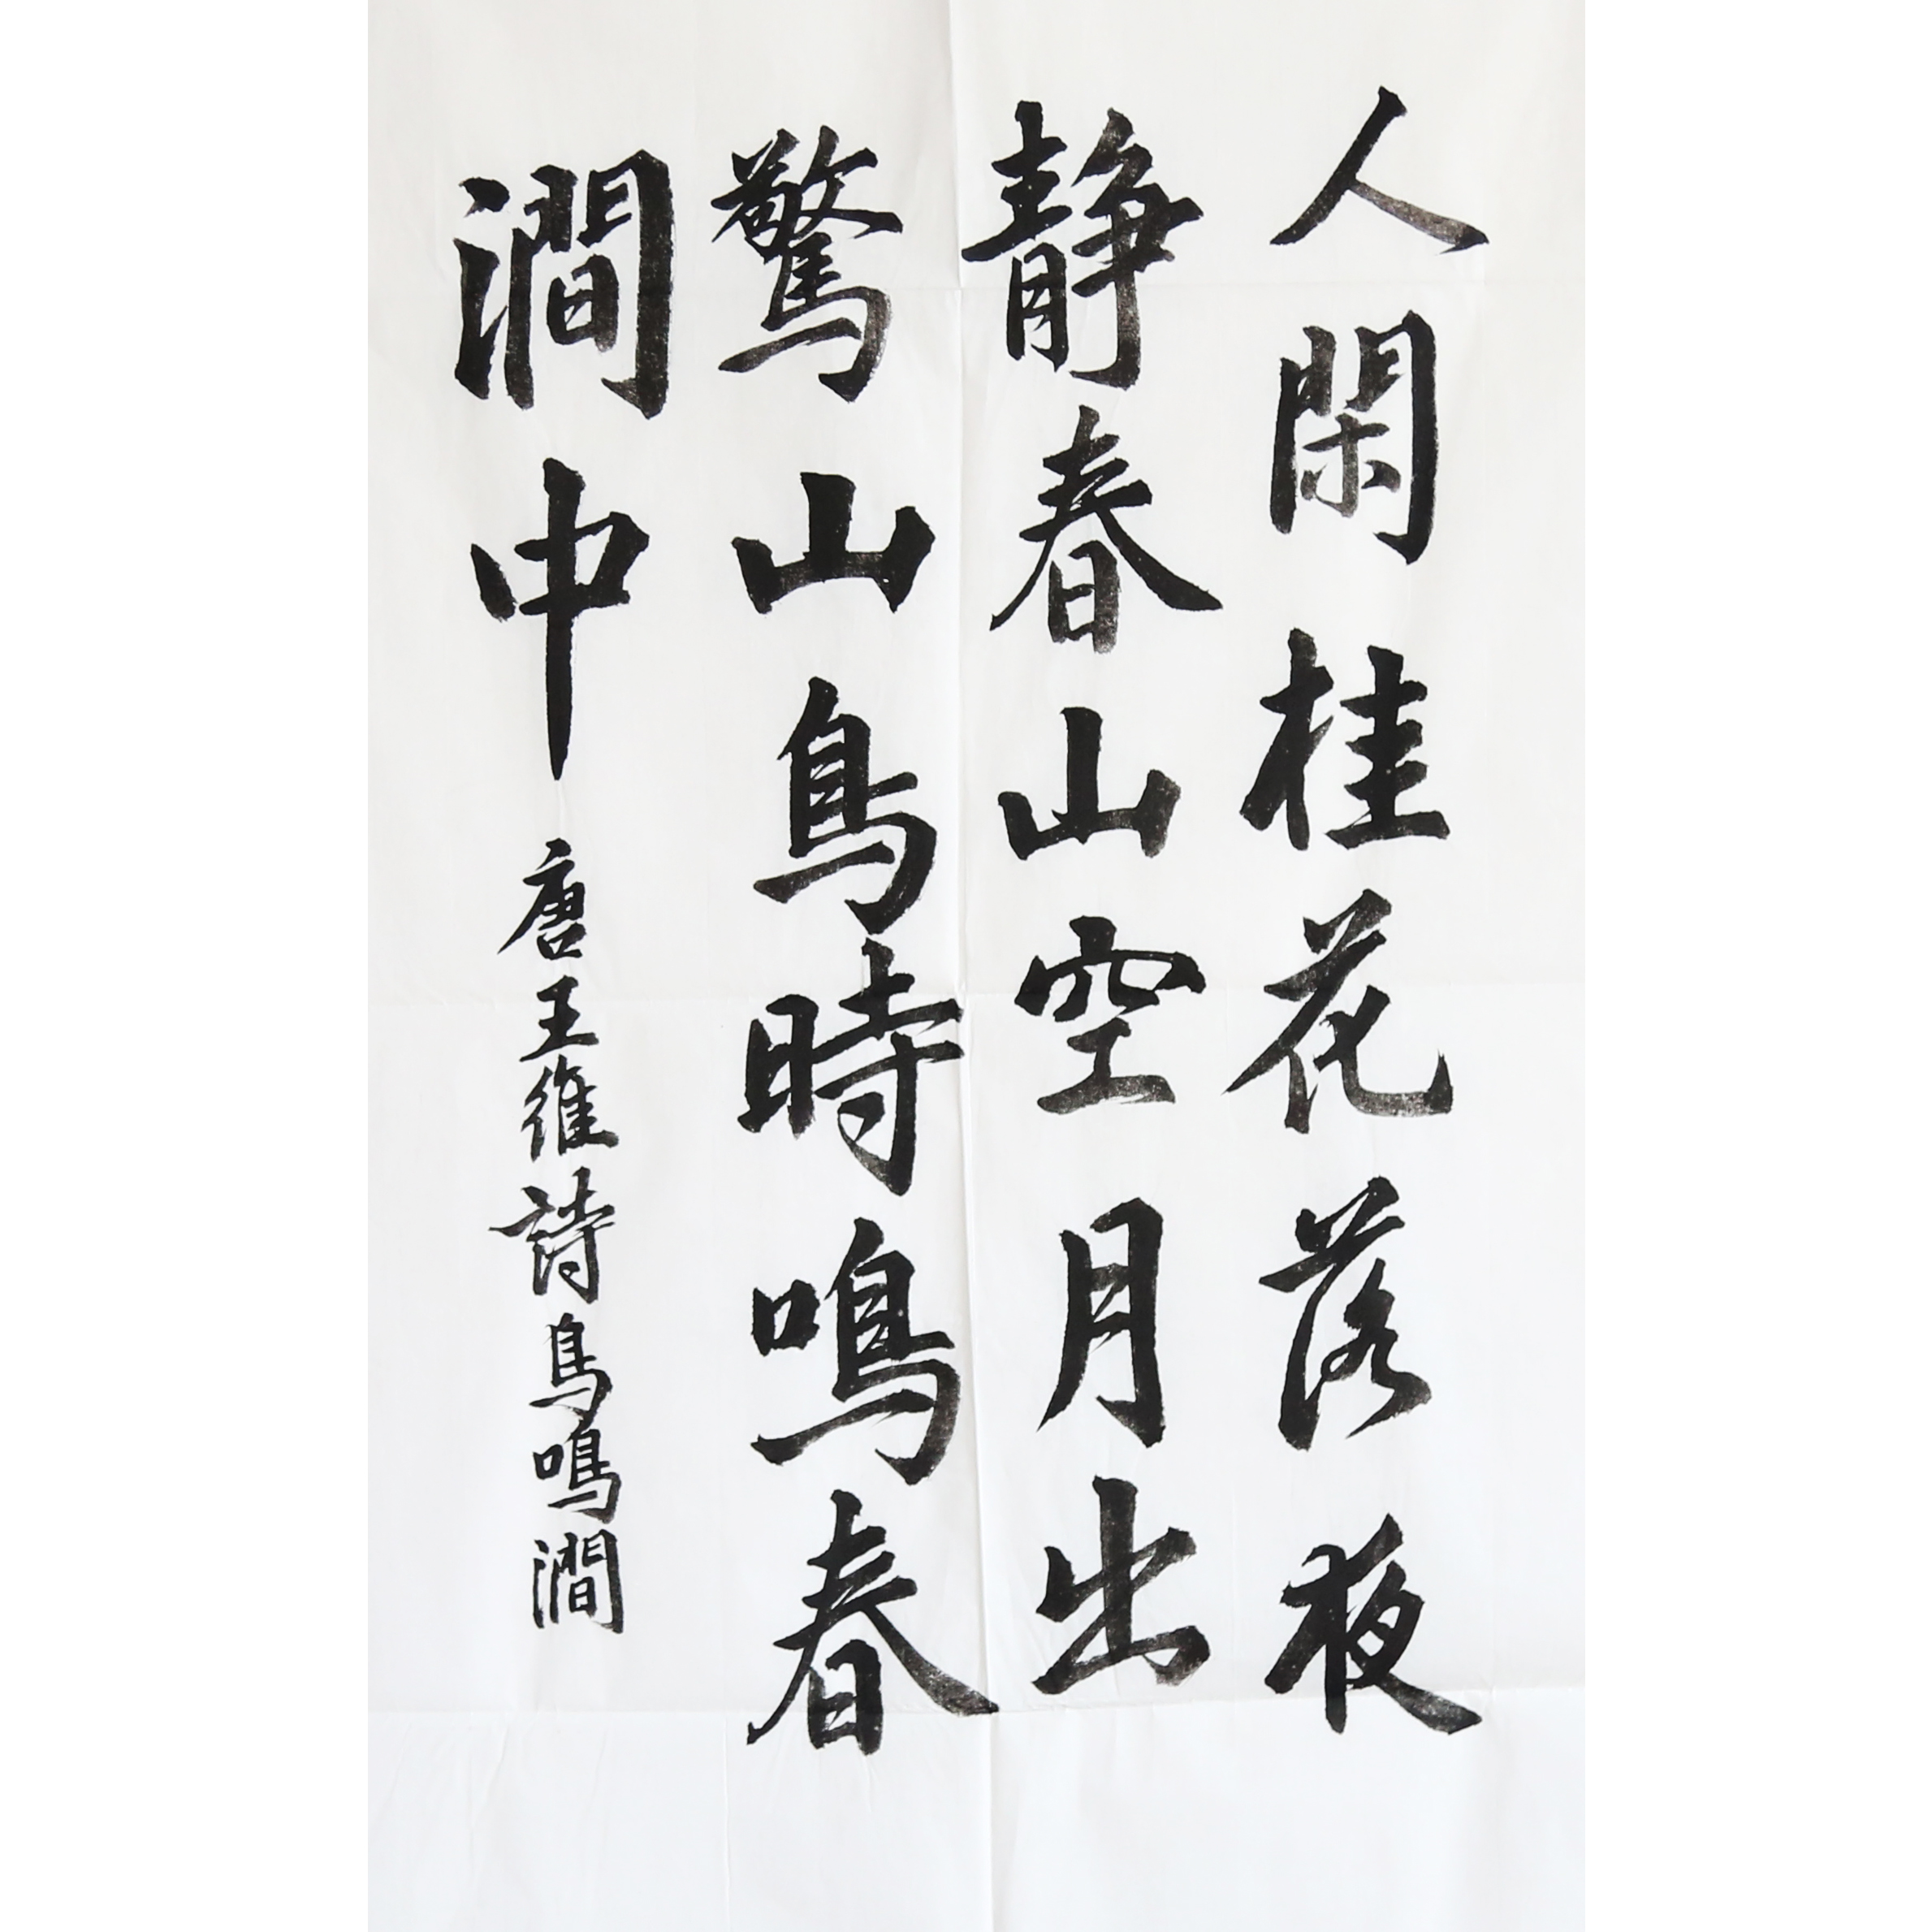 人閑桂花落夜
静春山空月出
驚山鳥時鳴春
澗中
唐王維詩鳥鳴澗